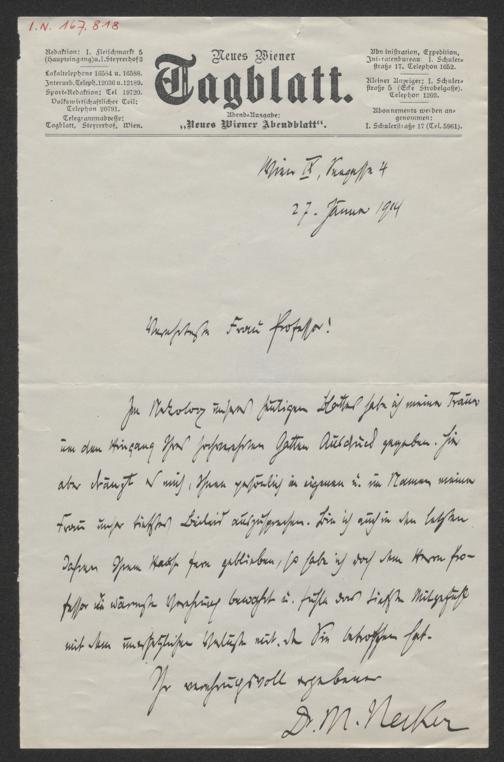 I.N. 167.818
Redaktion: I. Fleischmarkt 5
(Haupteingang) u. I. Steyrerhof 3
Lokaltelephone 16584 u. 16588.
Interurb. Teleph. 12036 u. 12189.
Sport-Redaktion: Tel 19720.
Volkswirtschaftlicher Teil:
Telephon 20791.
Telegrammadresse:
Tagblatt, Steyrerhof, Wien.
Neues Wiener
Tagblatt.
Abend-Ausgabe:
„Neues Wiener Abendblatt“.
Administration, Expedition,
Inseratenbureau: I. Schuler-
straße 17. Telephon 1652.
Kleiner Anzeiger: I. Schuler-
straße 5 (Ecke Strobelgasse).
Telephon 1262.
Abonnements werden an-
genommen:
I. Schulerstraße 17 (Tel. 5961).
Wien IX, Seegasse 4
27. Jänner 1914
Verehrteste Frau Professor!
Im Nekrolog unseres heutigen Blattes habe ich meiner Trauer
um den Hingang Ihres hochverehrten Gatten Ausdruck gegeben. Hier
aber drängt es mich, Ihnen persönlich im eigenen u. im Namen meiner
Frau unser tiefstes Beileid auszusprechen. Bin ich auch in den letzten
Jahren Ihrem Hause fern geblieben, so habe ich doch dem Herrn Pro-
fessor die wärmste Verehrung bewahrt u. fühle das tiefste Mitgefühl
mit dem unersetzlichen Verluste mit, der Sie betroffen hat.
Ihr verehrungsvoll ergebener
Dr. M. Necker